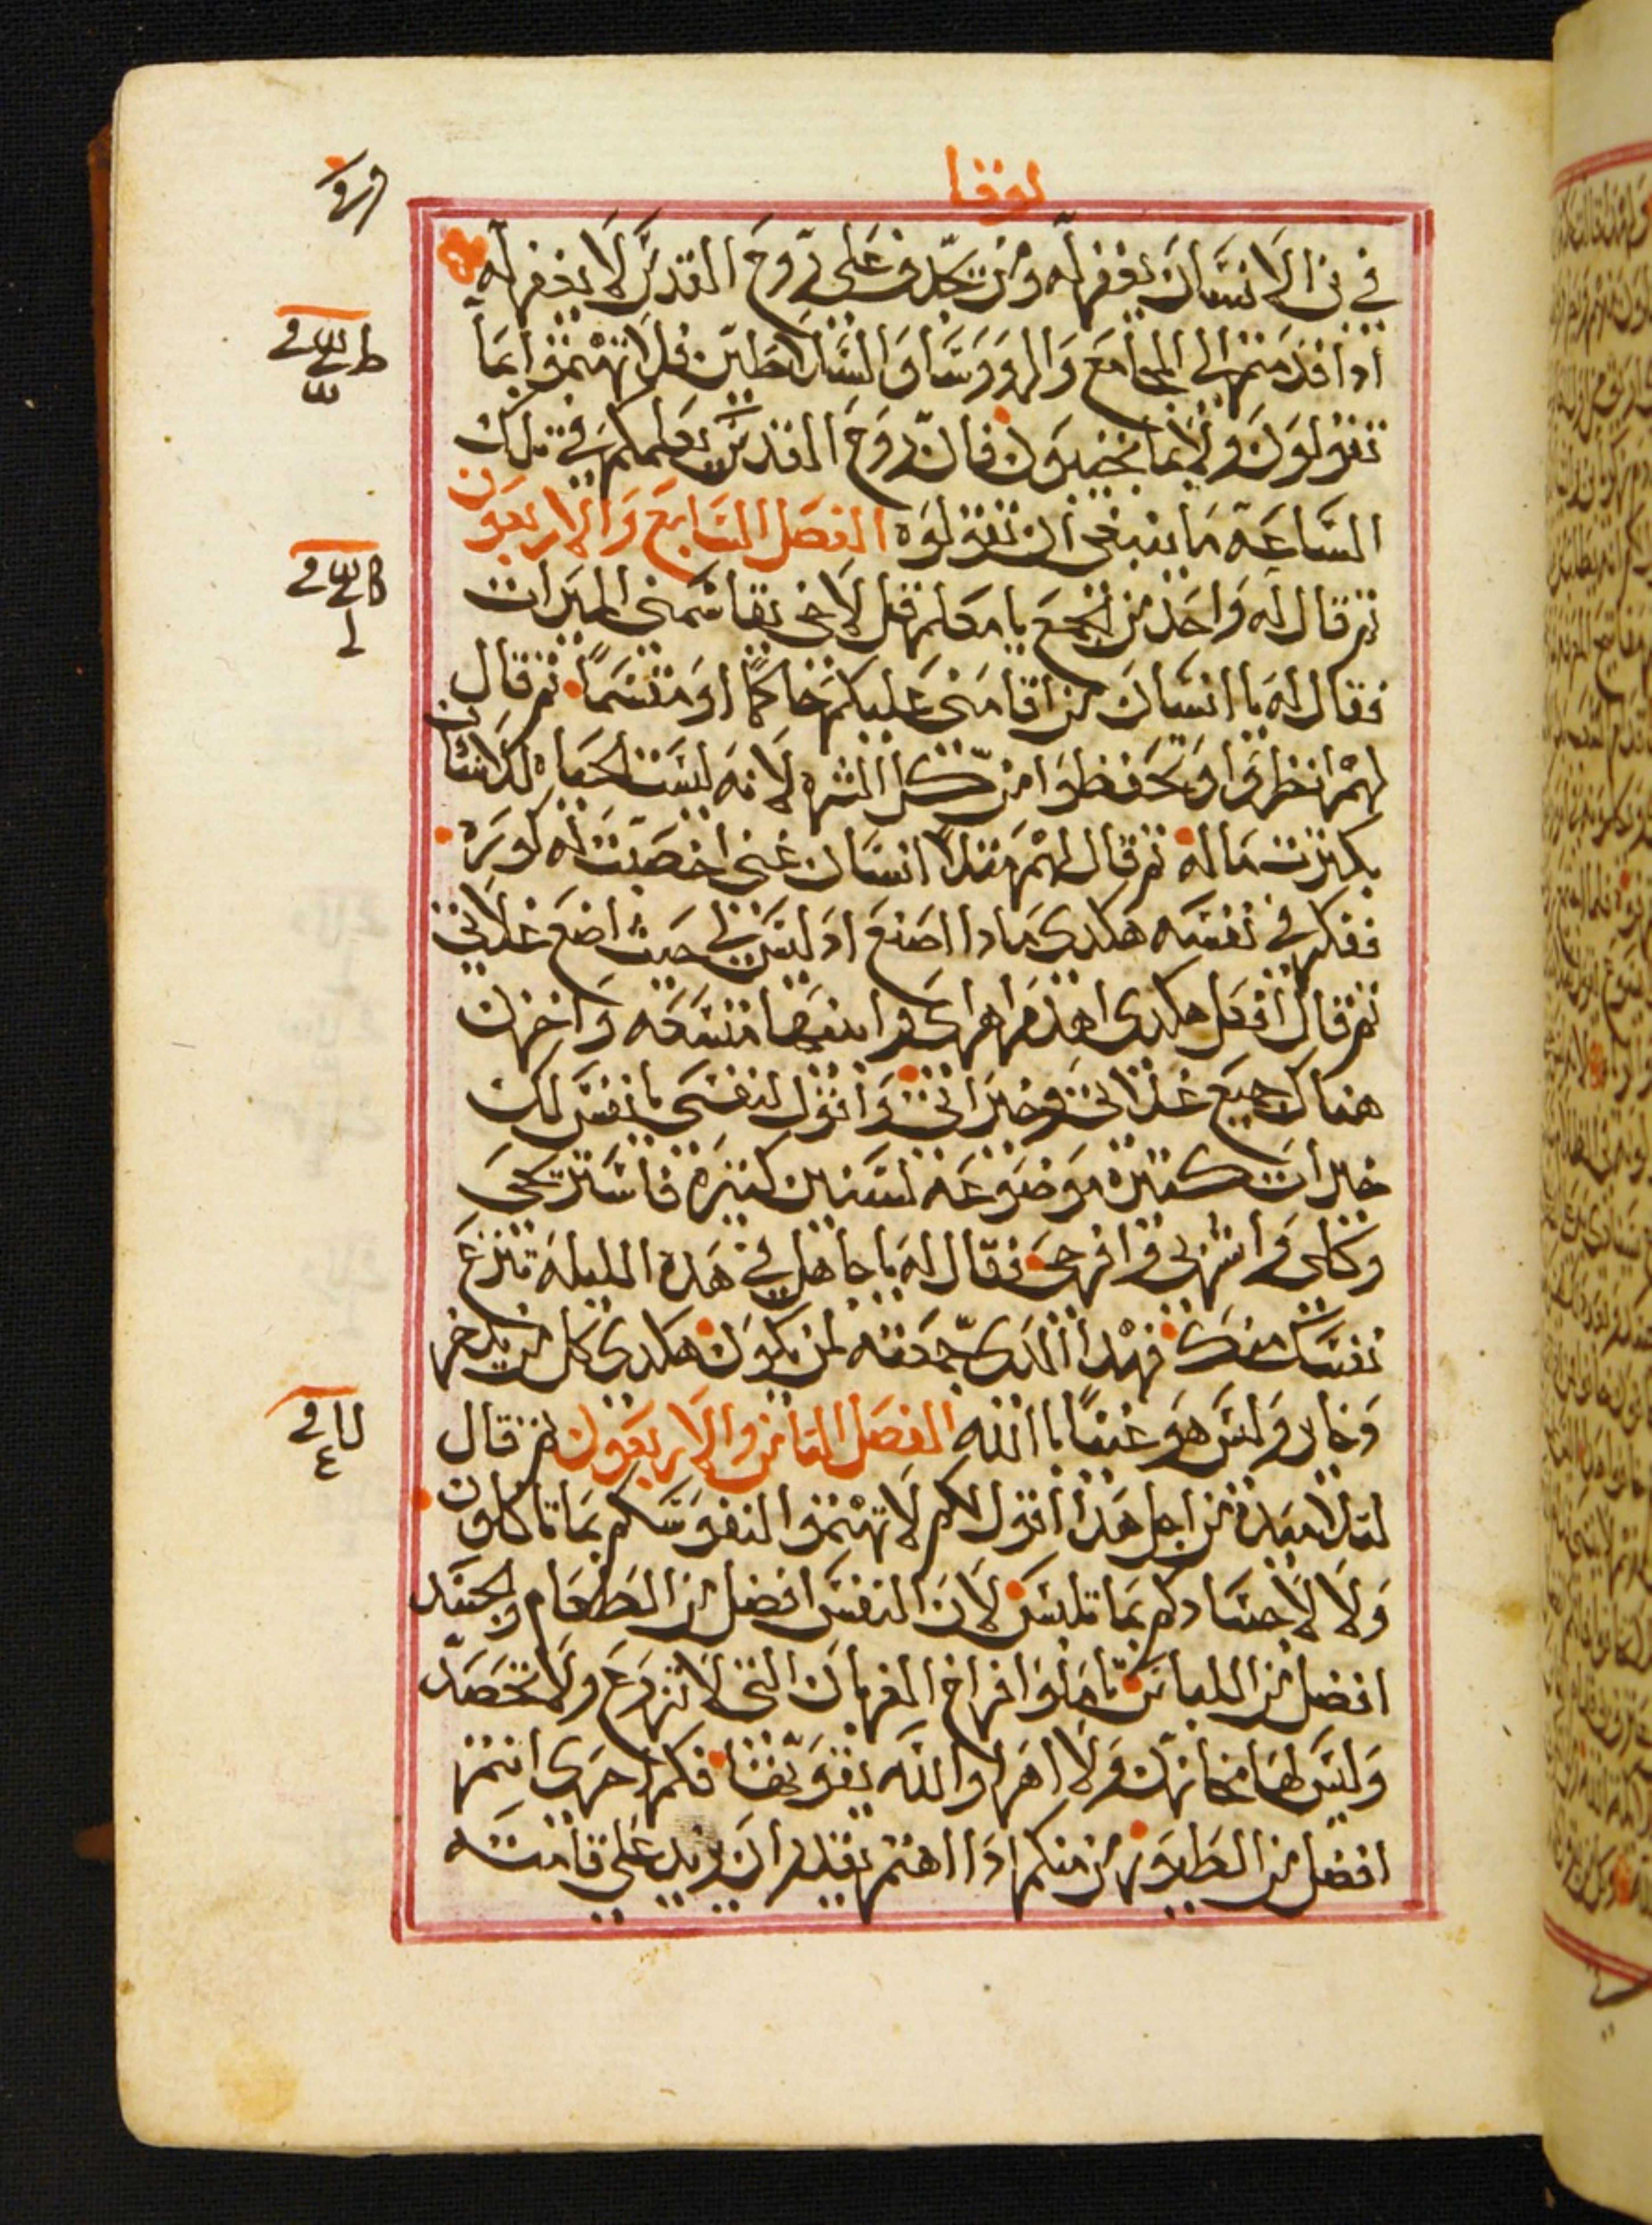 لوقا
في بن الانسان يغفر له ومن يجدف على روح القدس لا يغفر له
اذا قدمتم الى المجامع والرووسا والسلاطين فلا تهتموا بما
تقولون ولا بما تجيبون فان روح القدس يعلمكم في تلك
الساعة ما ينبغي ان تقولوه الفصل السابع والاربعون
ثم قال له واحد من الجمع يا معلم قل لاخي يقاسمني الميرات
فقال له يا انسان من اقامني عليكم حاكمًا او مقسمًا ثم قال
لهم انظروا وتحفظوا من كل الشره لانه ليست الحياه للانسان
بكثرت ماله ثم قال لهم مثلا انسان غني اخصبت له كوره
ففكر في نفسه هكدى مادا اصنع اد ليس لي حيث اضع غلاتي
ثم قال افعل هكدى اهدم اهراى وابنيها متسعه واخزن
هناك جميع غلاتي وخيراتي واقول لنفسي يا نفس لك
خيرات كتيره موضوعه لسنين كتيره فاستريحي
وكلي واشربي وافرحي فقال له يا جاهل في هده الليله تنزع
نفسك منك فهدا الدى جمعته لمن يكون هكدى كل من يدخر
دخاير وليس هو غنيًا باالله الفصل التامن والاربعون ثم قال
لتلاميده من اجل هدا اقول لكم لا تهتموا لنفوسكم بما تاكلون
ولا لاجسادكم بما تلبس لان النفس افضل من الطعام والجسد
افضل من اللباس تاملوا افراخ الغربان التي لا تزرع ولا تحصد
وليس لها مخازن ولا اهرا والله يقوتها فكم احرى انتم
افضل من الطيور من منكم ادا اهتم يقدر ان يزيد على قامته